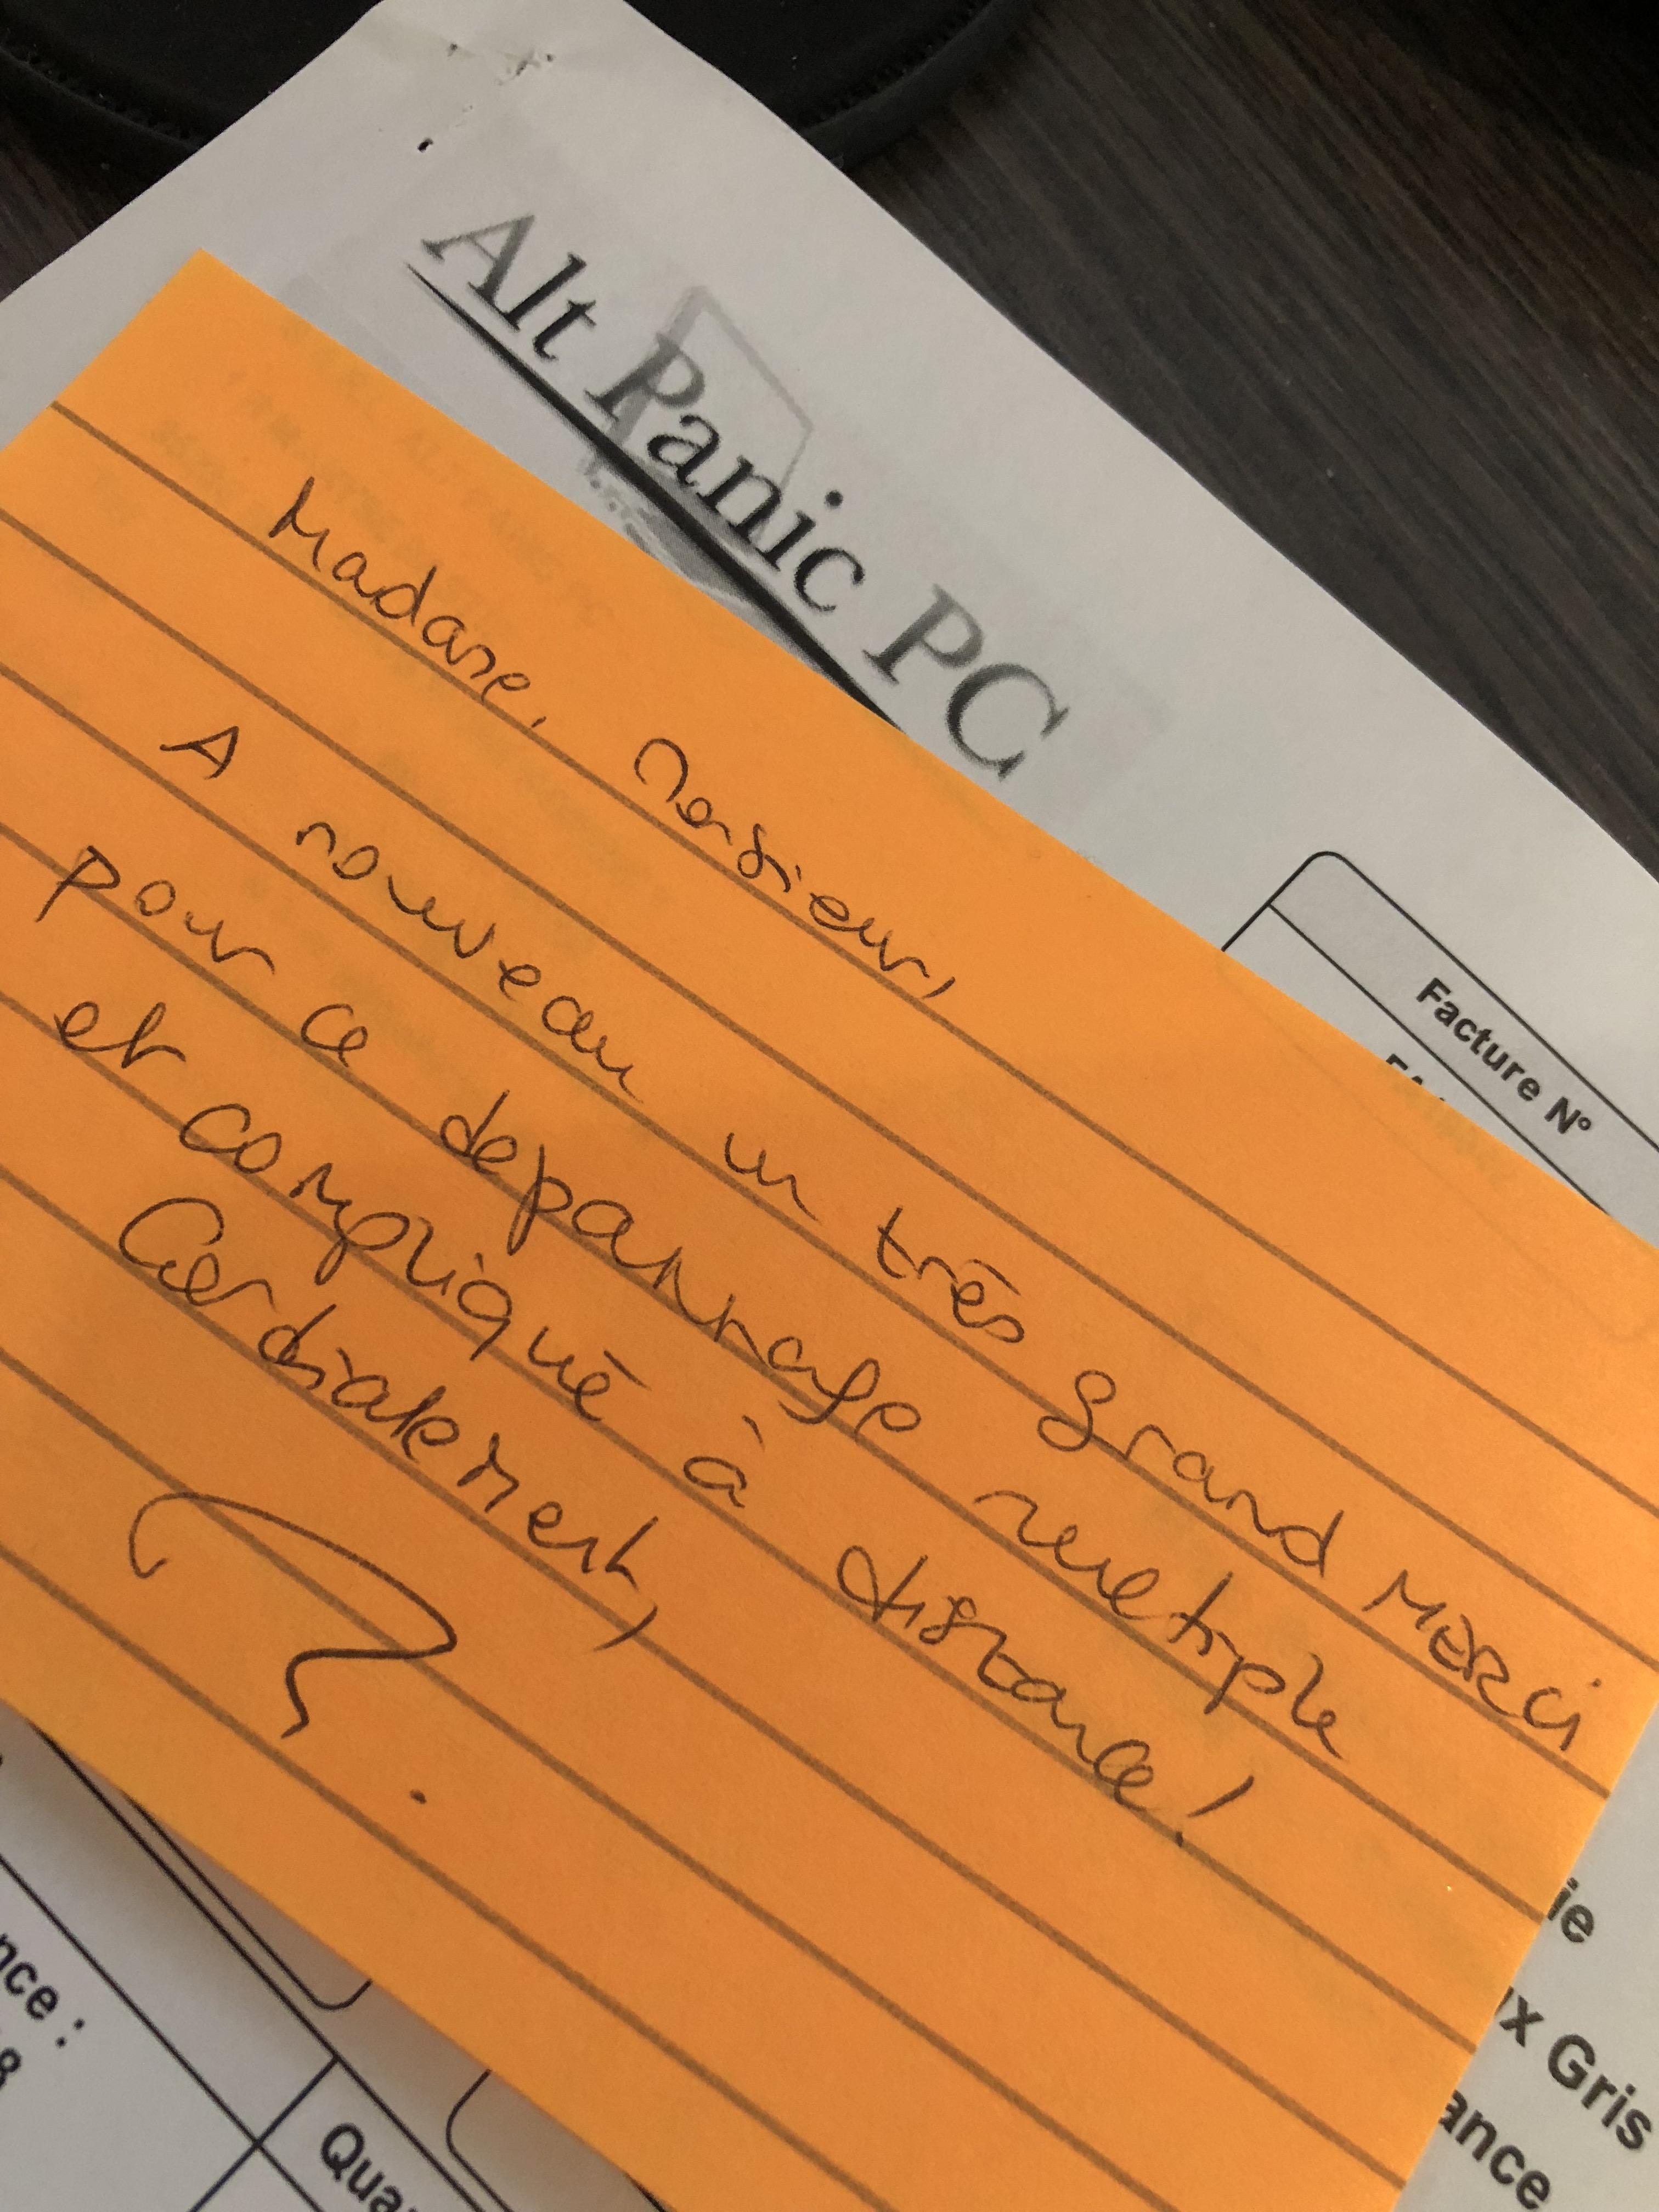 Alt Panic PC
Facture N°
Madame, Monsieur,
A nouveau un très grand MERCi
pour ce depannage multiple
et compliqué à distance !
Cordialement,
ie
x Gris
ance
nce :
8
Qua